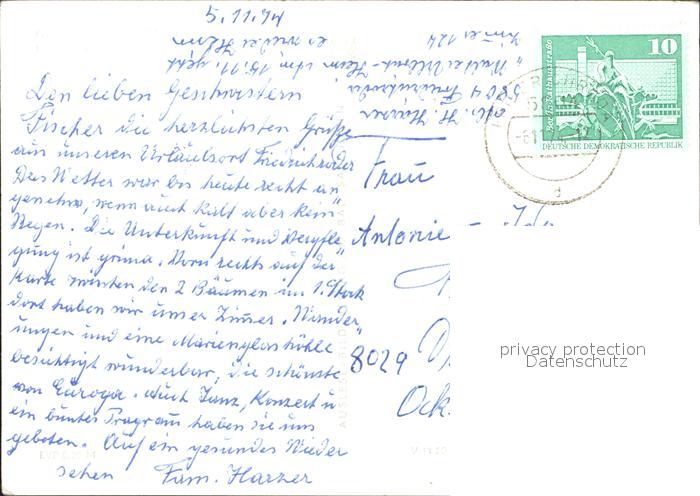 5.11.74
Den lieben Geschwistern
Fischer die herzlichsten Grüße
aus unseren Urlaubsort Friedrichroda
Das Wetter war bis heute recht an
genehm, wenn auch kalt aber kein
Regen. Die Unterkunft und Verpfle
gung ist prima. Vorn rechts auf der
Karte zwischen den 2 Bäumen im 1. Stock
dort haben wir unser Zimmer. Wander
ungen und eine Marienglashöhle
besichtigt wunderbar, die schönste
von Europa. Auch Tanz, Konzert u
ein buntes Programm haben sie uns
geboten. Auf ein gesundes Wieder
sehen Fam. Harzer
H. Harzer
5804 Friedrichroda
Heim
Zimmer 124
Frau
Antonie - Ida
8029
Ock.
10
DEUTSCHE DEMOKRATISCHE REPUBLIK
privacy protection
Datenschutz